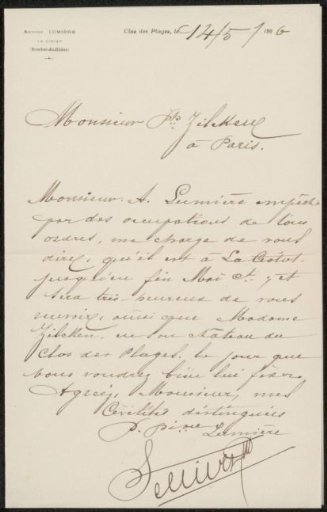 Antoine LUMIÈRE
LA CIOTAT
(Bouches-du-Rhône)
Clos des Plages, le 14/5/1906
Monsieur Ph. Zilcken
à Paris.
Monsieur A. Lumière empêché
par des occupations de tous
ordres, me charge de vous
dire, qu'il est à La Ciotat
jusqu'en fin Mai ct. et
sera très heureux de vous
, ainsi que Madame
Zilcken, en son château du
Clos des Plages, le jour que
vous voudrez bien lui fixer.
Agréez, Monsieur, mes
Civilités distinguées
Lumière